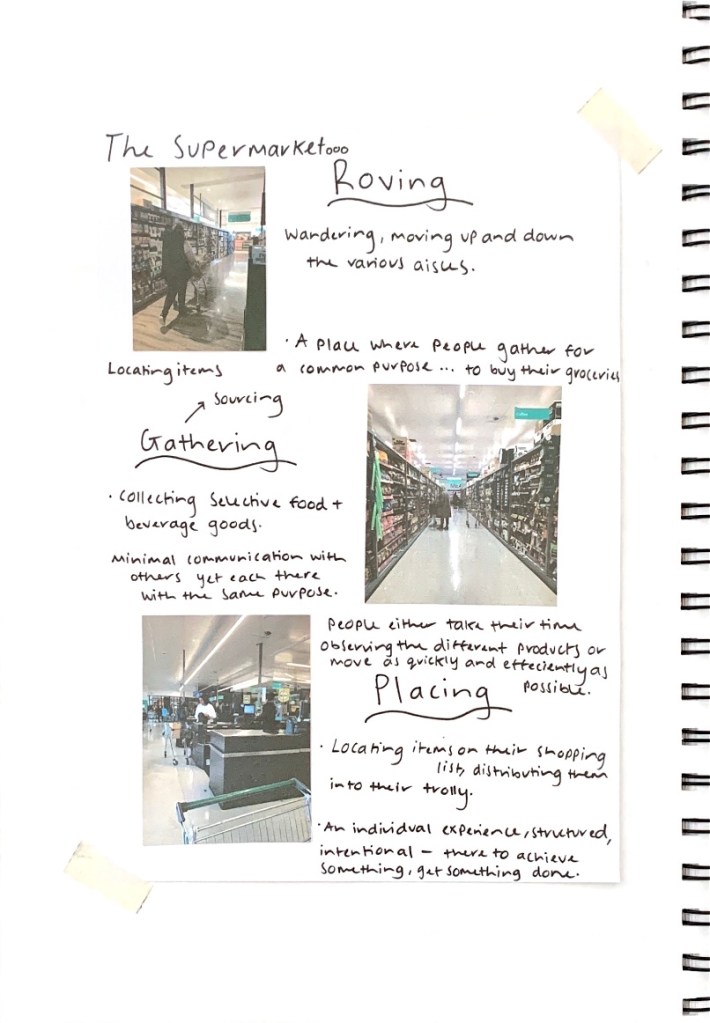 The Supermarket...
Roving
Wandering, moving up and down
the various aisles.
· A place where people gather for
a common purpose ... to buy their groceries
Locating items
↗ Sourcing
Gathering
· Collecting selective food +
beverage goods.
Minimal communication with
others yet each there
with the same purpose.
People either take their time
observing the different products or
move as quickly and effeciently as
possible.
Placing
· Locating items on their shopping
list, distributing them
into their trolly.
· An individual experience, structured,
intentional – there to achieve
something, get something done.